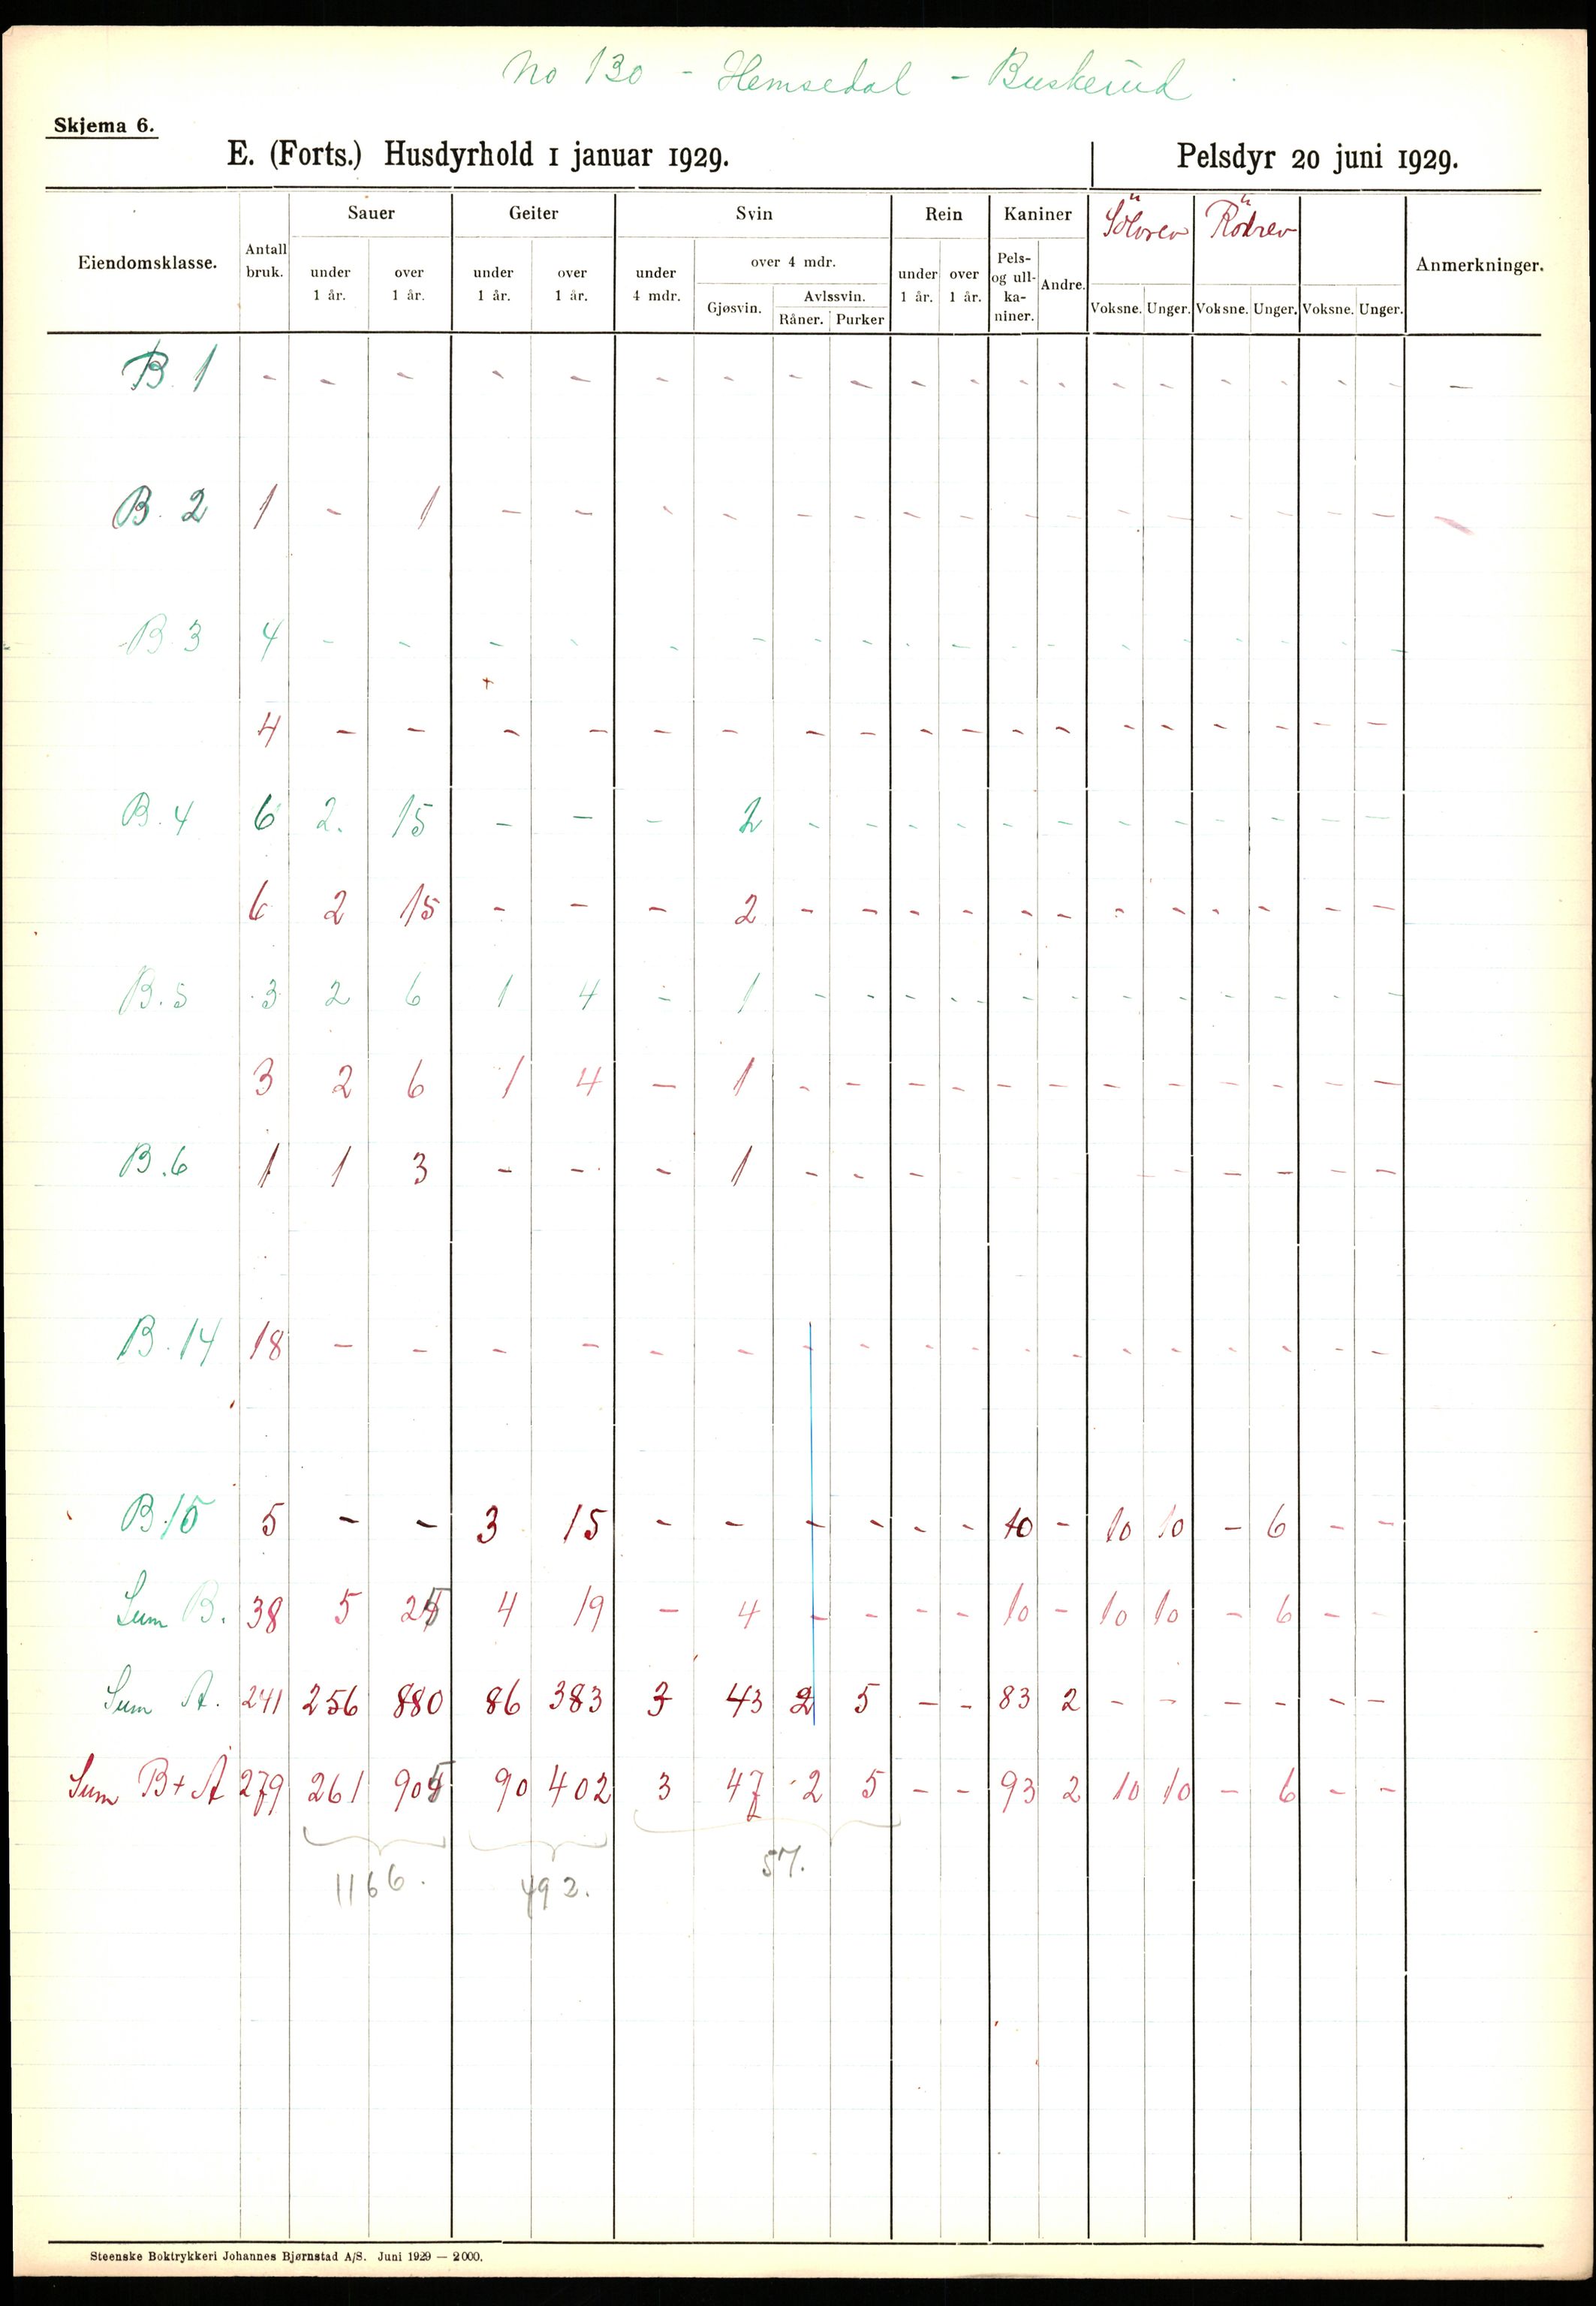 No 130 - Hemsedal - Buskerud
Skjema 6.
E. (Forts.) Husdyrhold 1 januar 1929. Pelsdyr 20 juni 1929.
Eiendomsklasse. Antall bruk. Sauer Geiter Svin Rein Kaniner Sölvrev Rödrev Anmerkninger.
under 1 år. over 1 år. under 1 år. over 1 år. under 4 mdr. over 4 mdr. under 1 år. over 1 år. Pels- og ull-ka-niner. Andre.
Gjøsvin. Avlssvin. Voksne. Unger. Voksne. Unger. Voksne. Unger.
Råner. Purker
B. 1 - - - - - - - - - - - - - - - - - - - -
B. 2 1 - 1 - - - - - - - - - - - - - - - - -
B. 3 4 - - - - - - - - - - - - - - - - - -
4 - - - - - - - - - - - - - - - - - -
B. 4 6 2. 15 - - - 2 - - - - - - - - - - - -
6 2 15 - - - 2 - - - - - - - - - - - -
B. 5 3 2 6 1 4 - 1 - - - - - - - - - - - -
3 2 6 1 4 - 1 - - - - - - - - - - - -
B. 6 1 1 3 - - - 1 - - - - - - - - -
B. 14 18 - - - - - - - - - - - - - - - - - -
B. 15 5 - - 3 15 - - - - - - 10 - 10 10 - 6 - -
Sum B. 38 5 25 4 19 - 4 - - - - 10 - 10 10 - 6 - -
Sum A. 241 256 880 86 383 3 43 2 5 - - 83 2 - - - - - -
Sum B + A 279 261 905 90 402 3 47 2 5 - - 93 2 10 10 - 6 - -
1166. 492. 57.
Steenske Boktrykkeri Johannes Bjørnstad A/S. Juni 1929 — 2000.